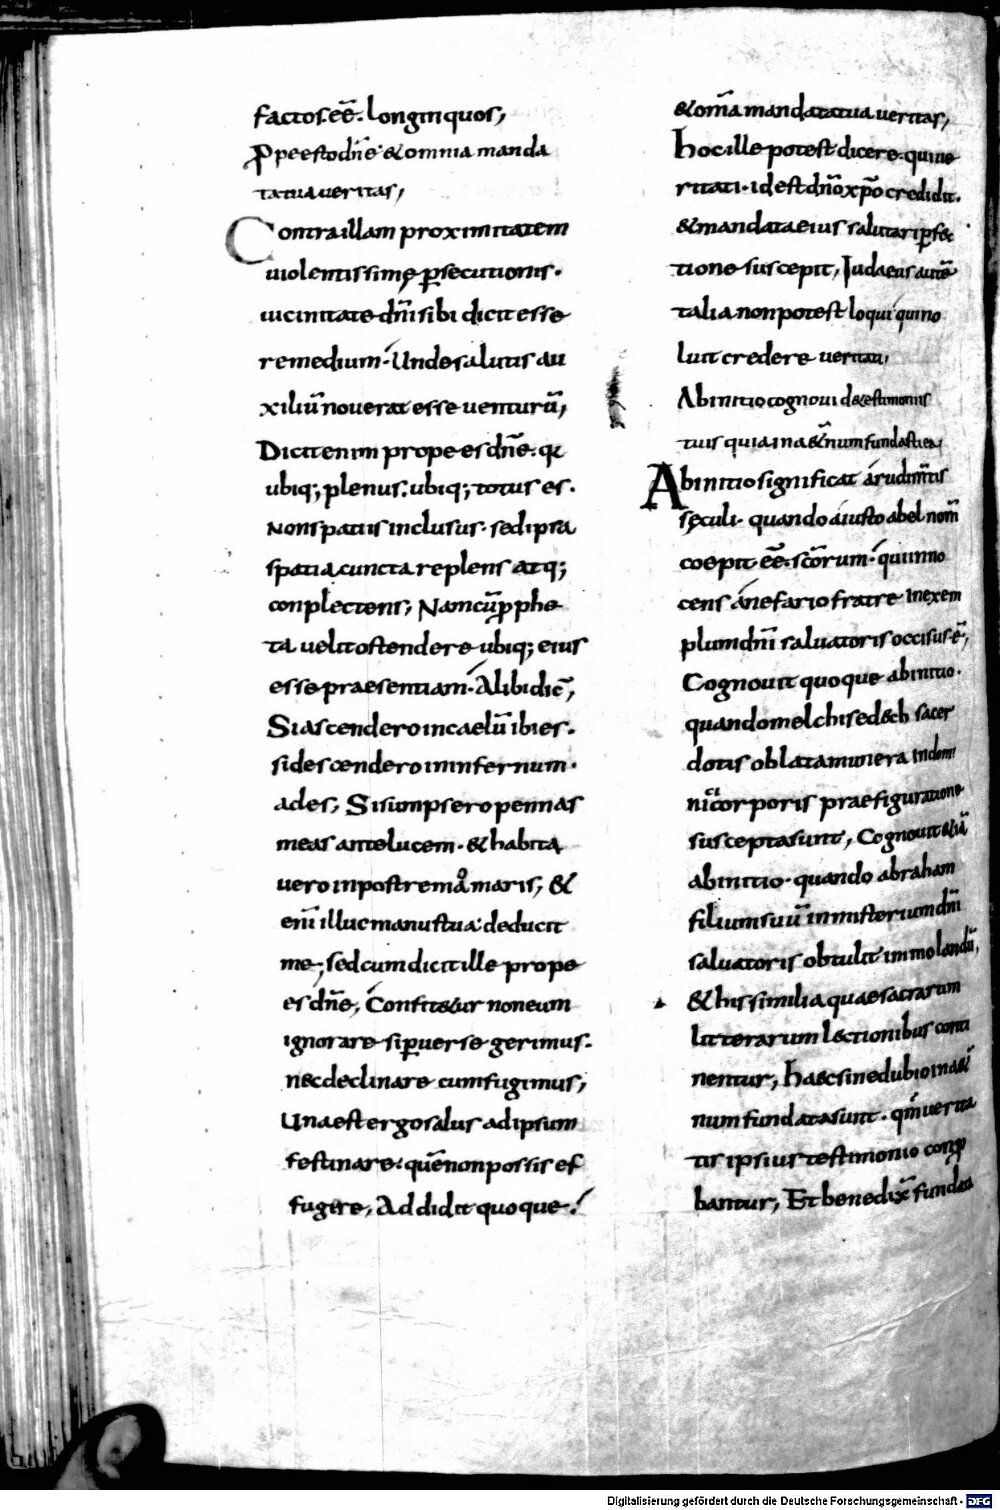 factos eē. longinquos,
Ꝓpe esto dn̄e & omnia manda
ta tua ueritas,
Contra illam proximitatem
uiolentissimę ꝑsecutionis.
uicinitate dn̄i sibi dicit esse
remedium. Unde salutis au
xiliū nouerat esse uenturū,
Dicit enim prope es dn̄e. q
ubiq; plenus. ubiq; totus es.
Non spatiis inclusus. sed ipsa
spatia cuncta replens atq;
conplectens; Nam cū ꝓphe
ta uelit ostendere ubiq; eius
esse praesentiam. Alibi dic̄,
Si ascendero in caelū ibi es.
si descendero in infernum.
ades; Si sumpsero pennas
meas ante lucem. & habita
uero in postrema maris; &
eni illuc manus tua deducit
me; sed cum dicit ille prope
es dn̄e, Confitetur non eum
ignorare si ꝑuerse gerimus.
nec declinare cum fugimus,
Una est ergo salus ad ipsum
festinare. quē non possis ef
fugere, Addidit quoque.
& om̄a mandata tua ueritas,
hoc ille potest dicere. qui ue
ritati. id est dn̄o xp̄o credidit.
& mandata eius salutari ꝑfec
tione suscepit, Iudaeus autē
talia non potest loqui qui no
luit credere ueritati,
Ab initio cognoui de testimoniis
tuis quia in aet̄num fundasti ea,
Ab initio significat a rudim̄tis
sęculi. quando a iusto abel nom̄
coepit eē. scōrum. qui inno
cens a nefario fratre In exem
plum dn̄i saluatoris occisus ē,
Cognouit quoque ab initio.
quando melchisedech sacer
dotis oblata munera In domi
nici corporis praefiguratione
suscepta sunt, Cognouit etiā
ab initio. quando abraham
filium suū in misterium dn̄i
saluatoris obtulit immolandū,
& his similia quae sacrarum
litterarum lectionibus conti
nentur, haec sine dubio in aet̄
num fundata sunt. qm̄ uerita
tis ipsius testimonio conꝓ
bantur, Et bene dix̄ fundata